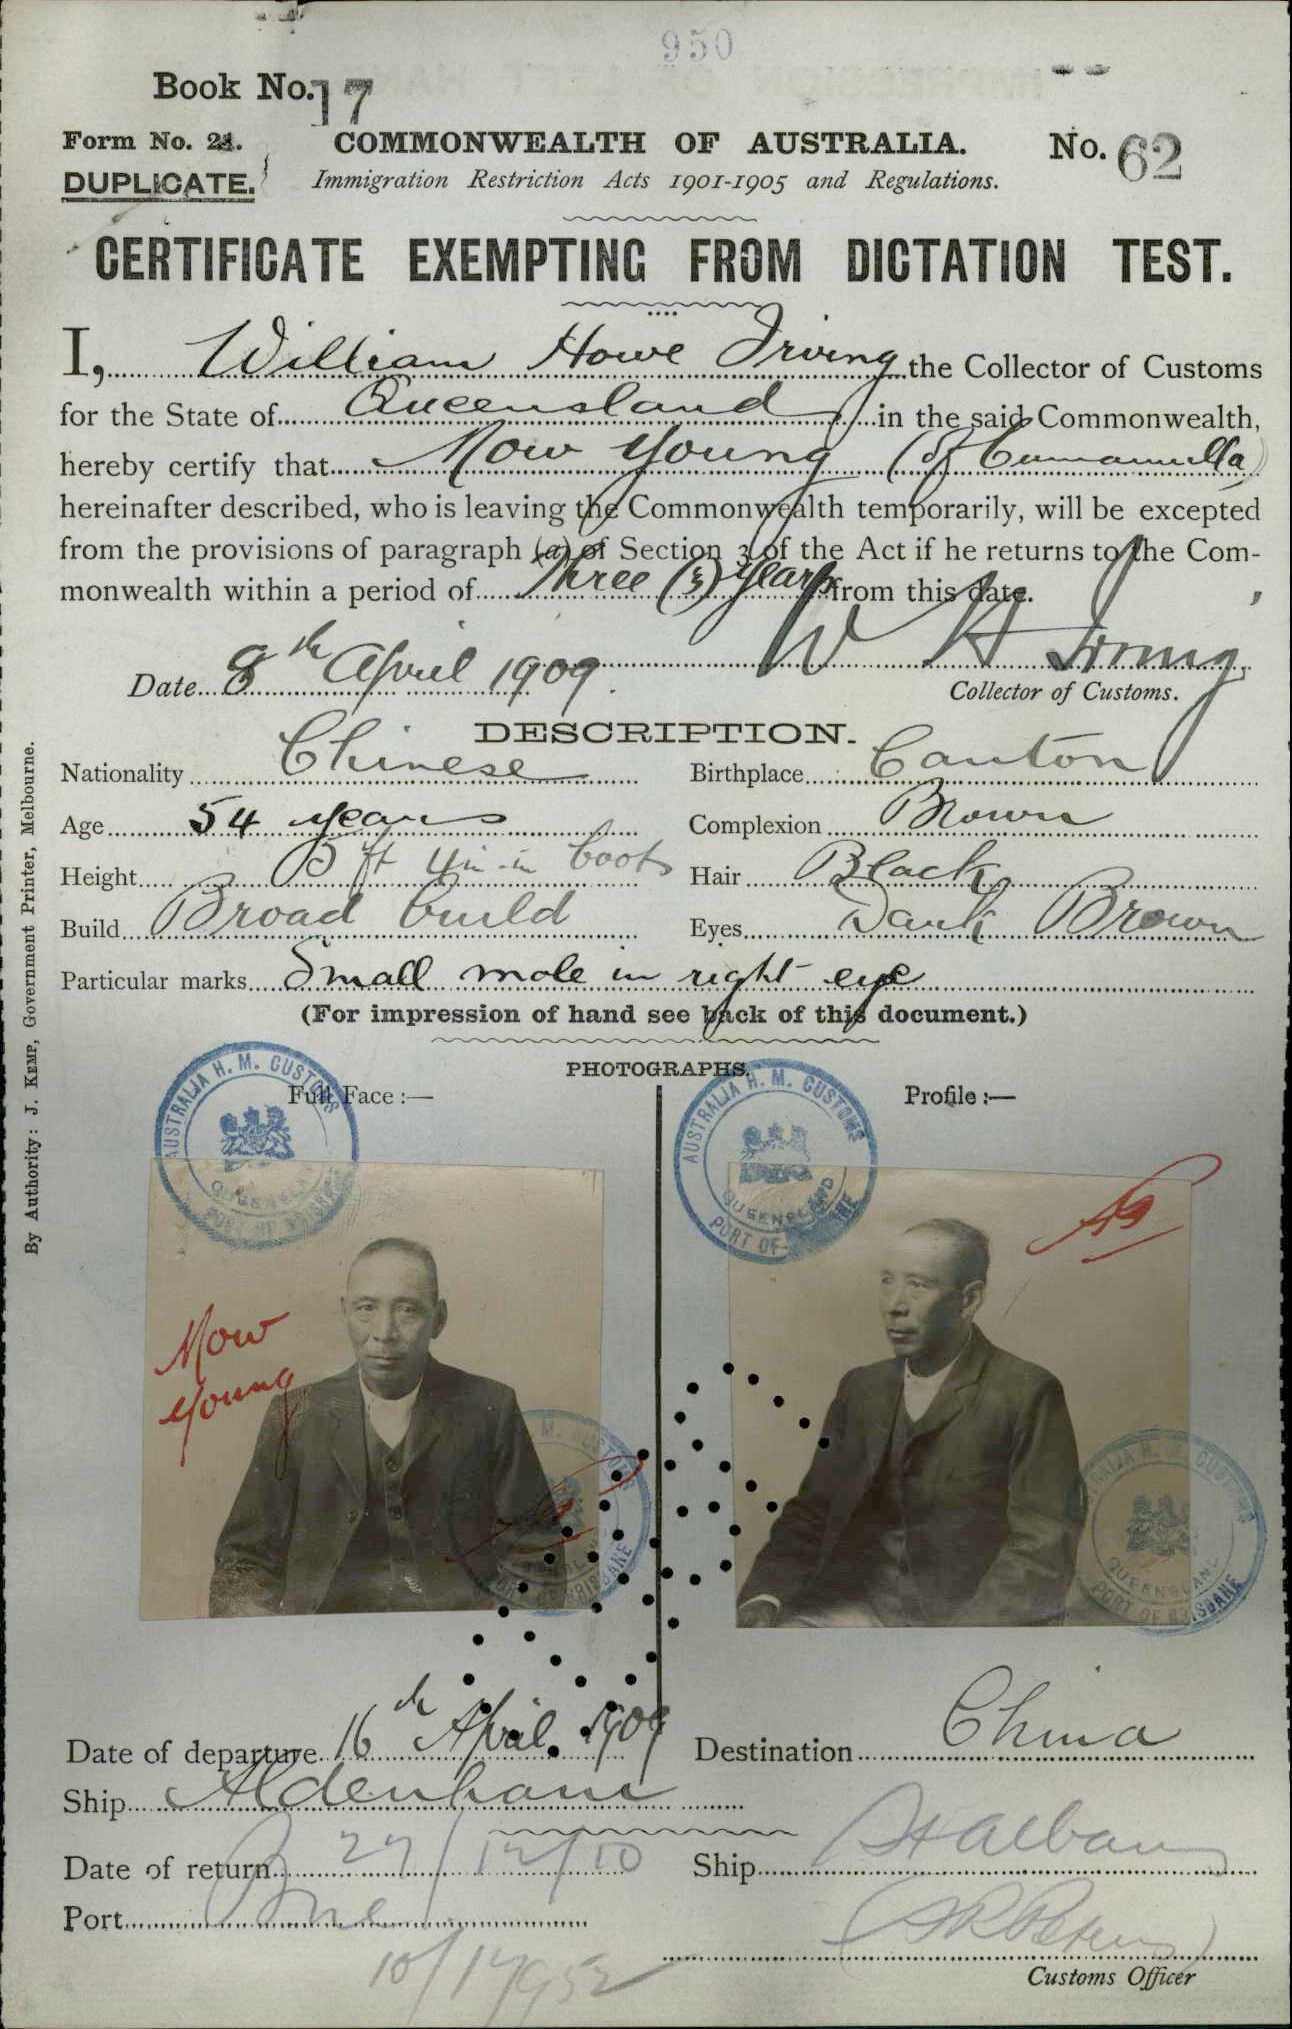 950
Book No. 17
Form No. 21. COMMONWEALTH OF AUSTRALIA. No. 62
DUPLICATE. Immigration Restriction Acts 1901-1905 and Regulations.
CERTIFICATE EXEMPTING FROM DICTATION TEST.
I, William Howe Irving the Collector of Customs
for the State of Queensland in the said Commonwealth,
hereby certify that Mow Young (of Cunnamulla)
hereinafter described, who is leaving the Commonwealth temporarily, will be excepted
from the provisions of paragraph (a) of Section 3 of the Act if he returns to the Com-
monwealth within a period of Three (3) years from this date.
W H Irving
Date 8th April 1909. Collector of Customs.
DESCRIPTION.
Nationality Chinese Birthplace Canton
Age 54 years Complexion Brown
Height 5 ft 4 in in boots Hair Black
Build Broad build Eyes Dark Brown
Particular marks Small mole in right eye
(For impression of hand see back of this document.)
PHOTOGRAPHS.
Full Face :— Profile :—
AUSTRALIA H. M. CUSTOMS QUEENSLAND PORT OF BRISBANE
AUSTRALIA H. M. CUSTOMS QUEENSLAND PORT OF BRISBANE
Mow
Young
M. CUSTOMS BRISBANE
AUSTRALIA H. M. CUSTOMS QUEENSLAND PORT OF BRISBANE
Date of departure 16th April 1909 Destination China
Ship Aldenham
Date of return 27/12/10 Ship St Albans
Port Bne
10/17952
Customs Officer
By Authority: J. KEMP, Government Printer, Melbourne.